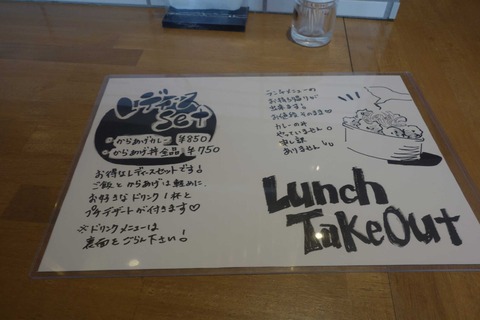 レディース
Set
・からあげカレー ¥850
・からあげ丼全品 ¥750
お得なレディースセットです!
ご飯とからあげは軽めに、
お好きなドリンク1杯と
プチデザートが付きます♡
※ドリンクメニューは
裏面をごらん下さい!
ランチメニューの
お持ち帰りが
出来ます!
お値段そのまま♡
カレーのみ
やっていません。
申し訳
ありません
Lunch
TakeOut